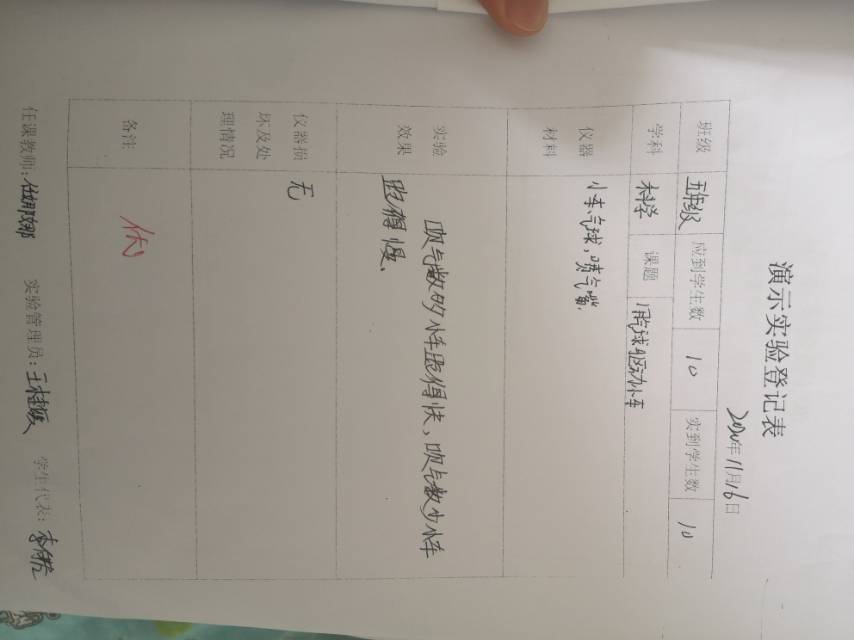 演示实验登记表
2020年11月16日
班级 五年级 应到学生数 10 实到学生数 10
学科 科学 课题 用气球驱动小车
仪器 材料 小车,气球,喷气嘴.
实验 效果 吹气数多小车跑得快,吹气数少小车
跑得慢、
仪器损 坏及处 理情况 无
备注 优
任课教师: 实验管理员: 学生代表: